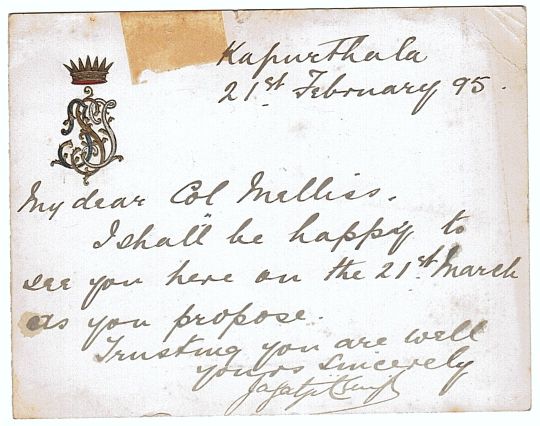 Kapurthala
21st February 95.
My dear Col Melliss.
I shall be happy to
see you here on the 21st March
as you propose.
Trusting you are well
yours sincerely
Jagatjit Singh